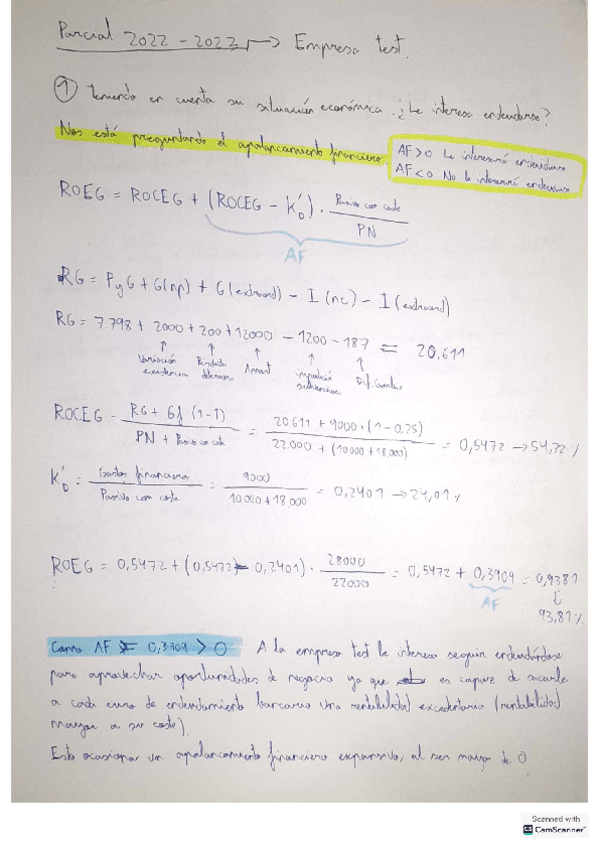 Parcial 2022 - 2023 → Empresa test.
① teniendo en cuenta su situación económica ¿Le interesa endeudarse?
Nos está preguntando el apalancamiento financiero.
AF>0 Le interesará endeudarse
AF<0 No le interesará endeudarse
ROEG = ROCEG + (ROCEG - K'D) · Pasivo con coste / PN
AF
RG = PyG + G(np) + G(extraord) - I(nc) - I(extraord)
RG = 7.798 + 2000 + 200 + 12000 - 1200 - 187 = 20.611
Variación existencias
Pérdida deterioro
Amort
imputación subvenciones
Dif. Cambio
ROCEG = RG + Gf (1-t) / PN + Pasivo con coste = 20.611 + 9000 · (1 - 0,25) / 22.000 + (10000 + 18.000) = 0,5472 → 54,72 %
K'D = Gastos financieros / Pasivo con coste = 9000 / 10.000 + 18.000 = 0,2401 → 24,01 %
ROEG = 0,5472 + (0,5472 - 0,2401) · 28000 / 22000 = 0,5472 + 0,3909 = 0,9381
AF
93,81 %
Como AF = 0,3909 > 0 A la empresa test le interesa seguir endeudándose
para aprovechar oportunidades de negocio ya que es capaz de sacarle
a cada euro de endeudamiento bancario una rentabilidad excedentaria (rentabilidad
mayor a su coste).
Esto ocasionar un apalancamiento financiero expansivo, al ser mayor de 0
Scanned with
CS CamScanner